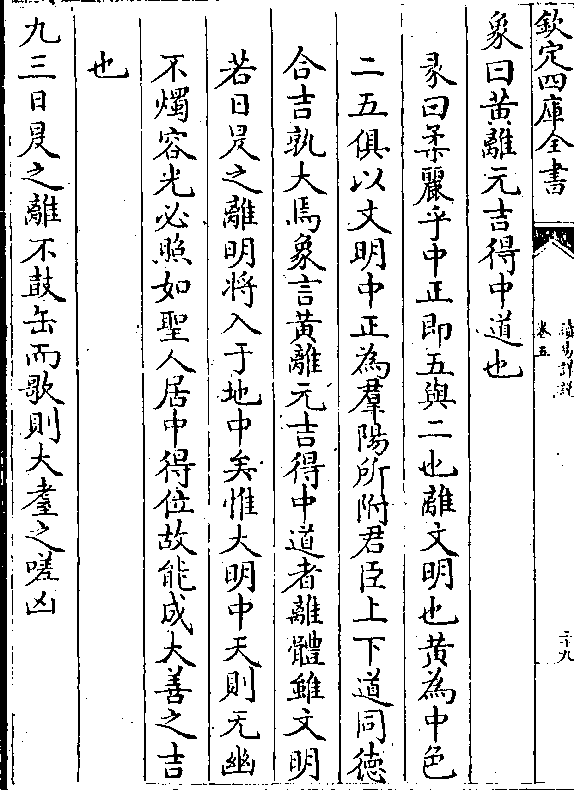 欽定四庫全書
讀易詳說
卷五
二十九
象曰黃離元吉得中道也
彖曰柔麗乎中正即五與二也離文明也黃為中色
二五俱以文明中正為羣陽所附君臣上下道同德
合吉孰大焉象言黃離元吉得中道者離體雖文明
若日昃之離明将入于地中矣惟大明中天則无幽
不燭容光必照如聖人居中得位故能成大善之吉
也
九三日昃之離不鼓缶而歌則大耋之嗟凶